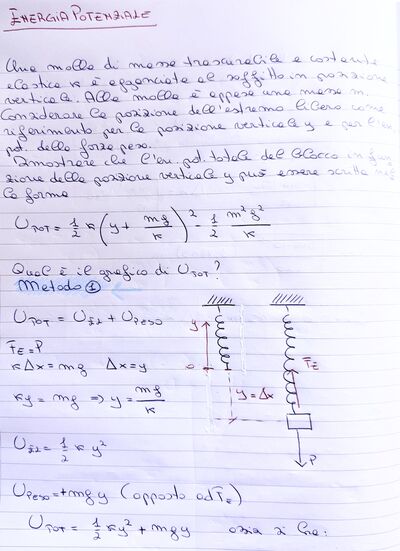 ENERGIA POTENZIALE
Una molla di massa trascurabile e costante
elastica k è agganciata al soffitto in posizione
verticale. Alla molla è appesa una massa m.
Considerare la posizione dell'estremo libero come
riferimento per la posizione verticale y e per l'en.
pot. della forza peso.
Dimostrare che l'en. pot. totale del blocco in fun
zione della posizione verticale y può essere scritta nel
la forma
U_TOT = 1/2 k (y + mg/k)² - 1/2 m²g²/k
Qual è il grafico di U_TOT?
Metodo ①
U_TOT = U_el + U_peso
F_E = P
kΔx = mg Δx = y
ky = mg ⇒ y = mg/k
U_el = 1/2 k y²
U_peso = +mgy (opposto ad F_E)
U_TOT = 1/2 ky² + mgy ossia si ha:
y
0
y = Δx
F_E
P